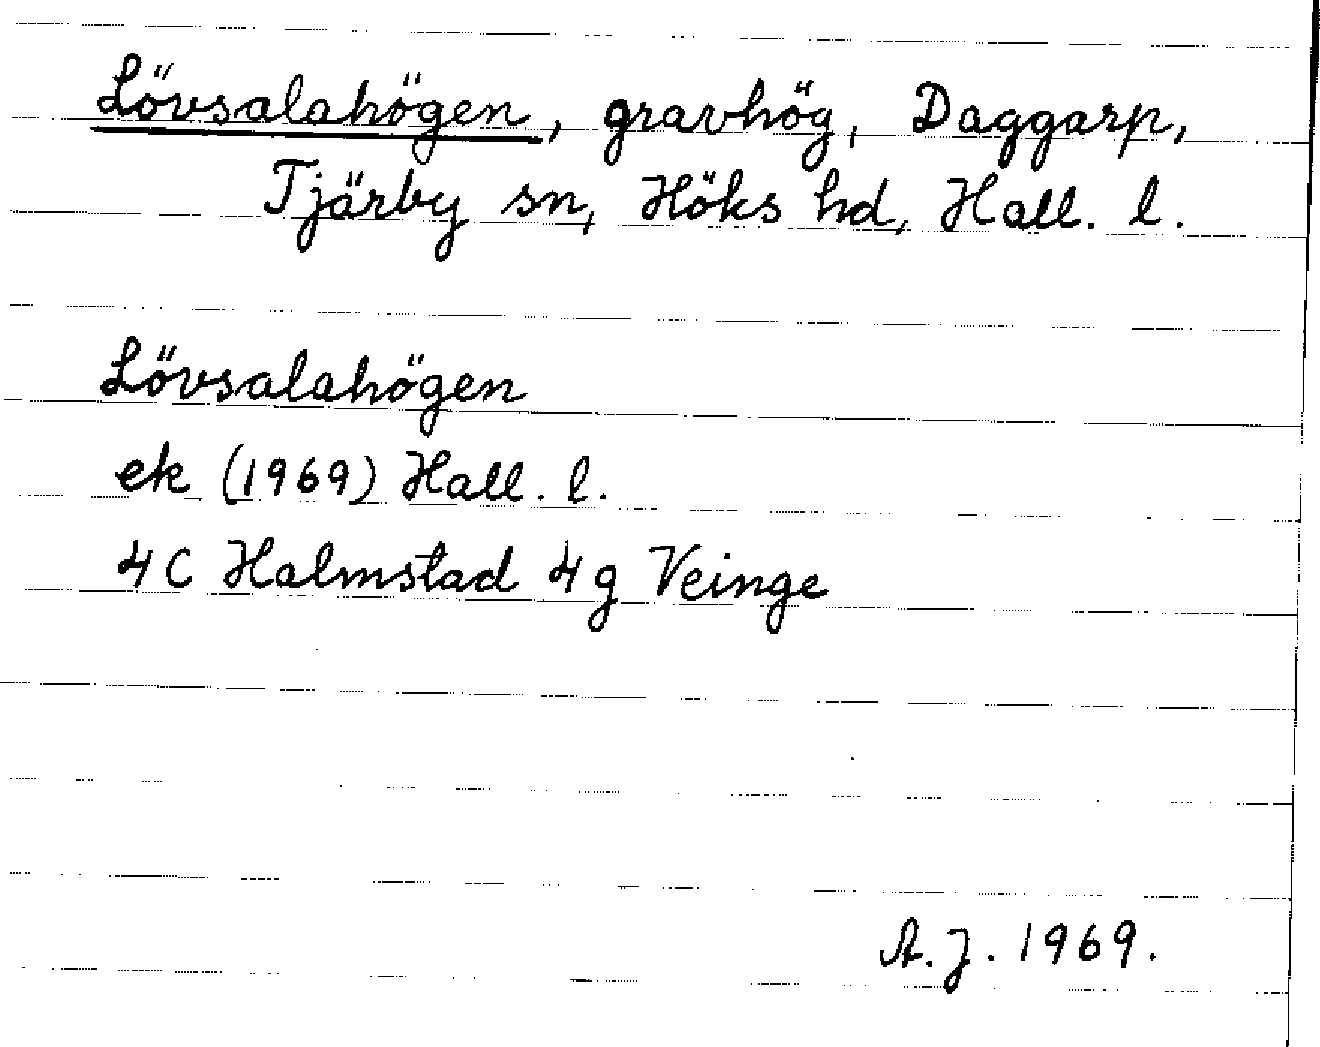 Lövsalahögen, gravhög, Daggarp,
Tjärby sn, Höks hd, Hall. l.
Lövsalahögen
ek (1969) Hall. l.
4 C Halmstad 4 g Veinge
A. J. 1969.